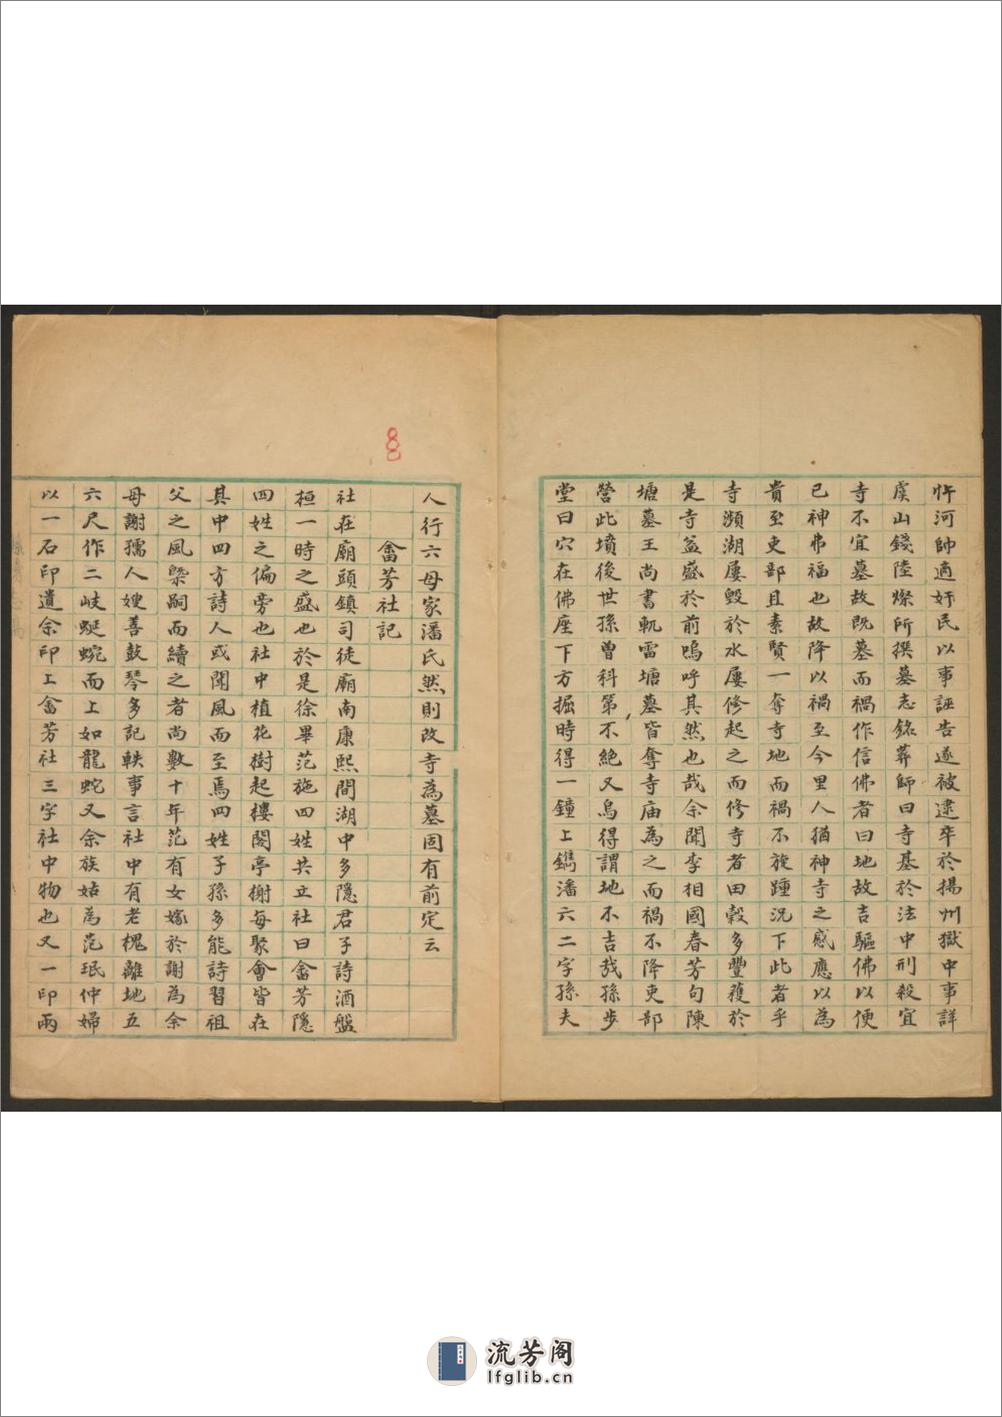 忤河帥適奸民以事誣告遂被逮卒於揚州獄中事詳
虞山錢陸燦所撰墓志銘葬師曰寺基於法中刑殺宜
寺不宜墓故既墓而禍作信佛者曰地故吉驅佛以便
已神弗福也故降以禍至今里人猶神寺之感應以為
貴至吏部且素賢一奪寺地而禍不旋踵況下此者乎
寺瀕湖屢毀於水屢修起之而修寺者田穀多豐穫於
是寺益盛於前嗚呼其然也哉余聞李相國春芳句陳
塘墓王尚書軌雷塘墓皆奪寺庙為之而禍不降吏部
營此墳後世孫曾科第不絕又烏得謂地不吉哉孫步
堂曰穴在佛座下方掘時得一鐘上鐫潘六二字孫夫
人行六母家潘氏然則改寺為墓固有前定云
8
畬芳社記
社在廟頭鎮司徒廟南康熙間湖中多隱君子詩酒盤
桓一時之盛也於是徐畢范施四姓共立社曰畬芳隱
四姓之偏旁也社中植花樹起樓閣亭榭每聚會皆在
其中四方詩人或聞風而至焉四姓子孫多能詩習祖
父之風槩嗣而續之者尚數十年范有女嫁於謝為余
母謝孺人嫂善鼓琴多記軼事言社中有老槐離地五
六尺作二岐蜒蜿而上如龍蛇又余族姑為范珉仲婦
以一石印遺余印上畬芳社三字社中物也又一印兩
流芳阁
lfglib.cn